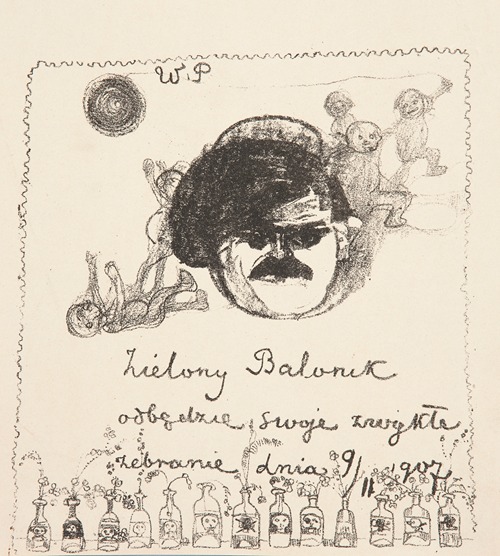 W.P
Zielony Balonik
odbędzie swoje zwykłe
zebranie dnia 9/II 907